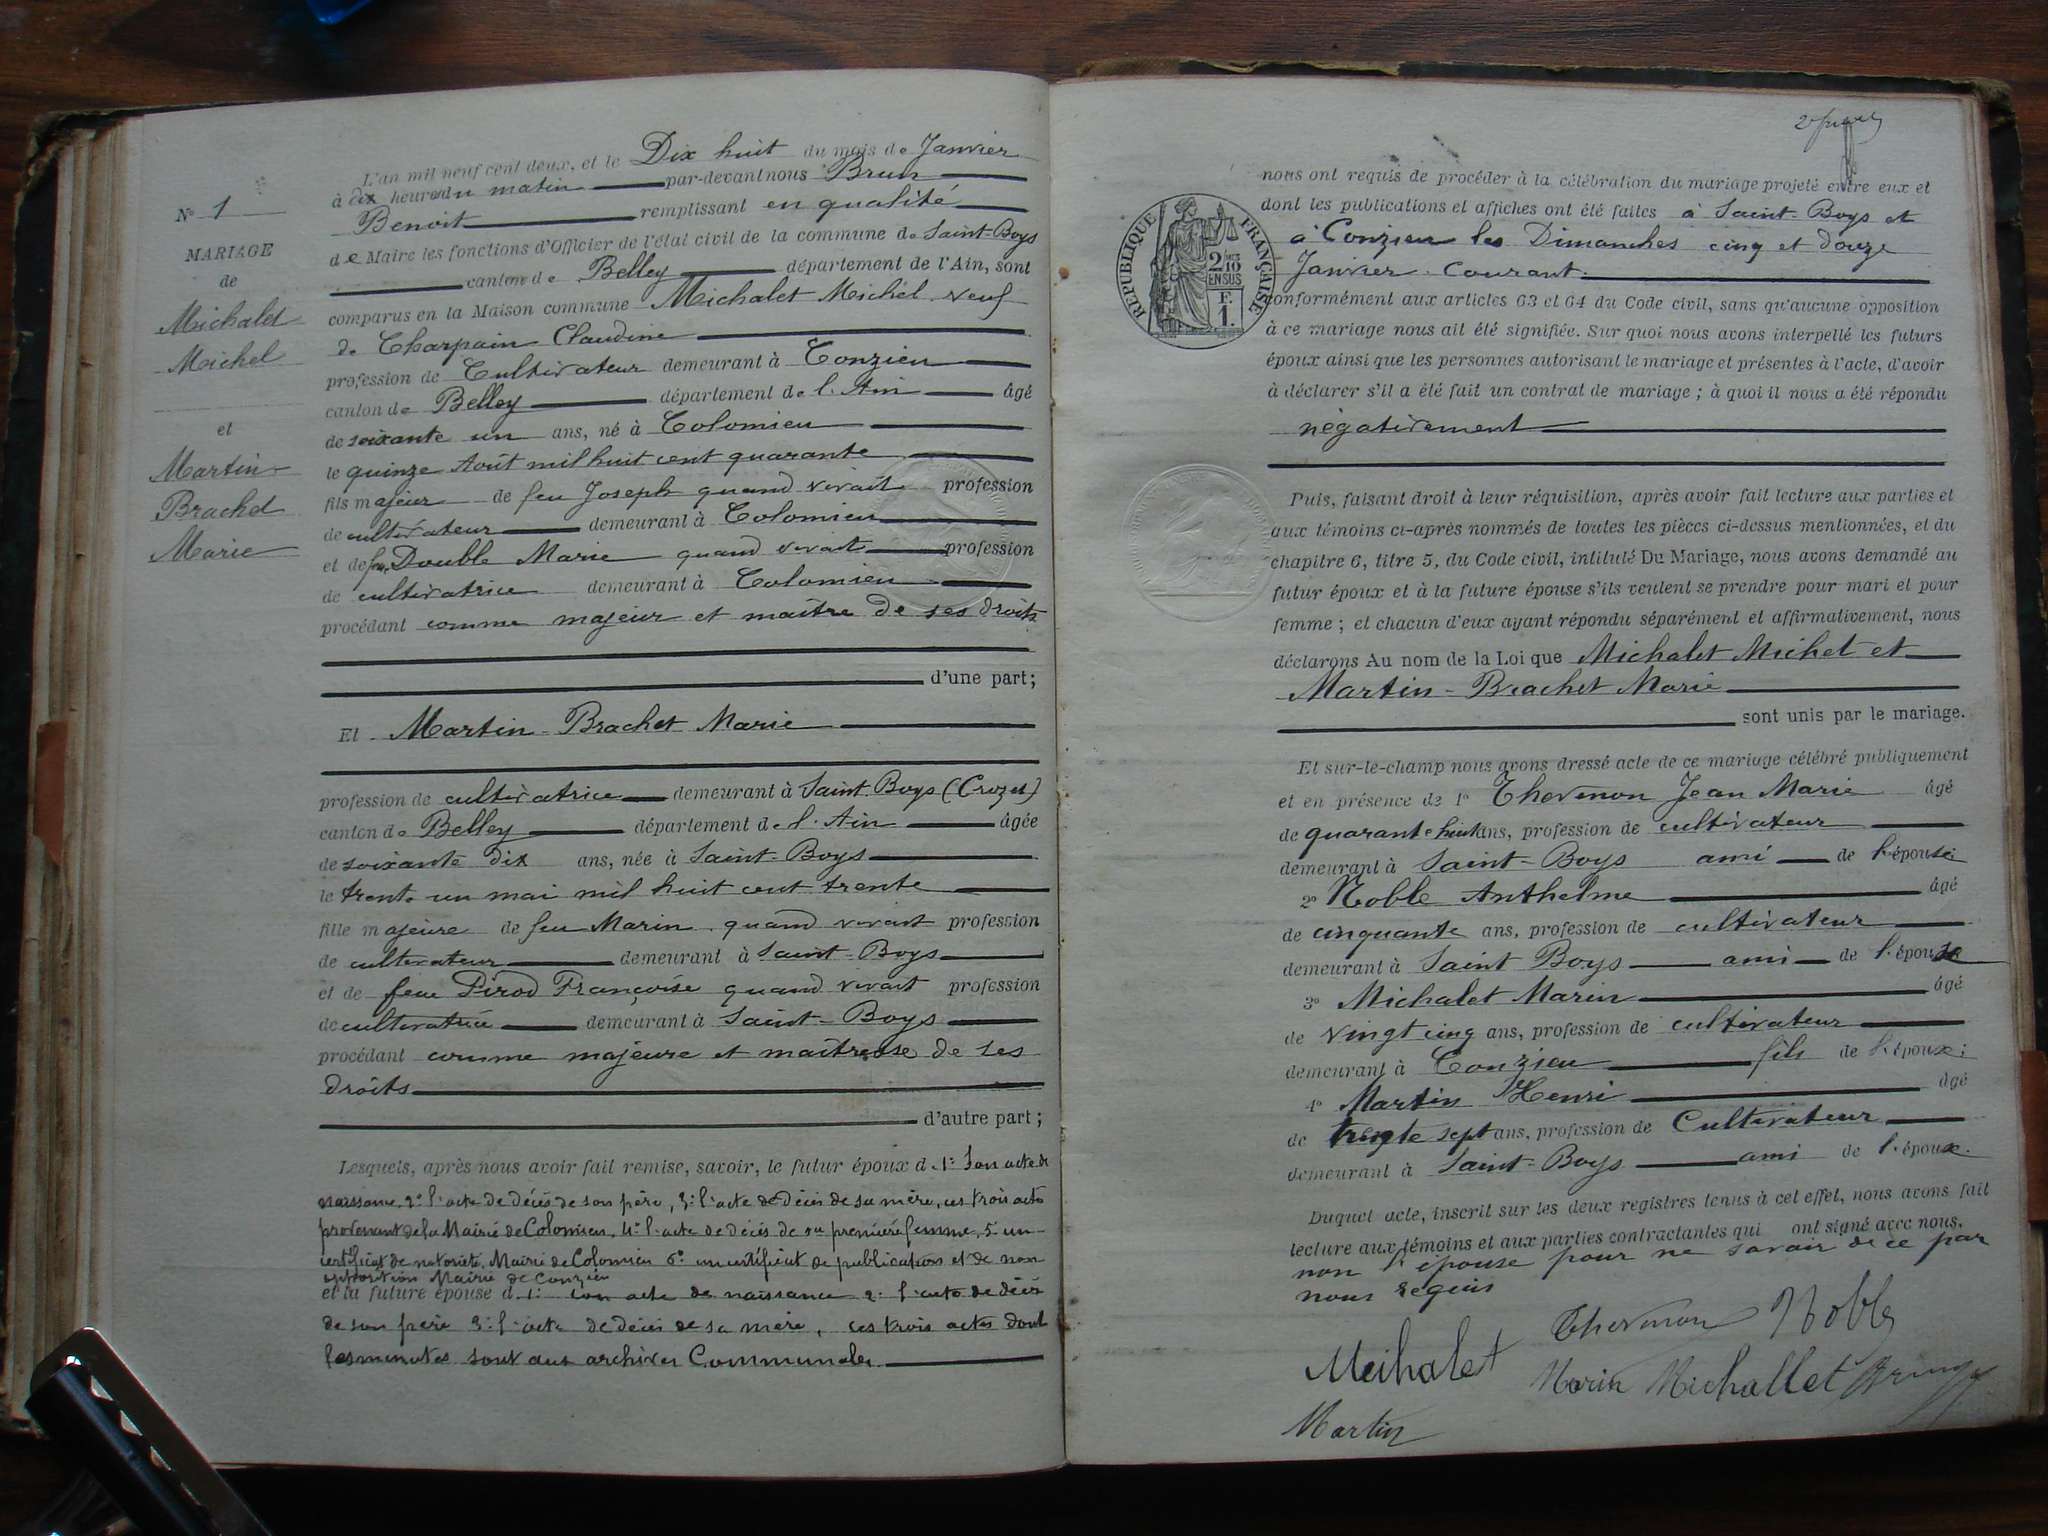 N° 1
MARIAGE
de
Michalet
Michel
et
Martin-
Brachet
Marie
L'an mil neuf cent deux, et le Dix huit du mois de Janvier
à dix heures du matin par-devant nous Brun
Benoit remplissant en qualité
de Maire les fonctions d'Officier de l'état civil de la commune de Saint-Boys
canton de Belley département de l'Ain, sont
comparus en la Maison commune Michalet Michel veuf
de Charpain Claudine
profession de Cultivateur demeurant à Conzieu
canton de Belley département de l'Ain âgé
de soixante un ans, né à Colomieu
le quinze Août mil huit cent quarante
fils majeur de feu Joseph quand vivait profession
de cultivateur demeurant à Colomieu
et de feu Double Marie quand vivait profession
de cultivatrice demeurant à Colomieu
procédant comme majeur et maître de ses droits
d'une part;
Et Martin-Brachet Marie
profession de cultivatrice demeurant à Saint-Boys (Crozet)
canton de Belley département de l'Ain âgée
de soixante dix ans, née à Saint-Boys
le trente un mai mil huit cent trente
fille majeure de feu Marin quand vivait profession
de cultivateur demeurant à Saint-Boys
et de feue Pirod Françoise quand vivait profession
de cultivatrice demeurant à Saint-Boys
procédant comme majeure et maîtresse de ses
droits
d'autre part;
Lesquels, après nous avoir fait remise, savoir, le futur époux d 1° Son acte de
naissance, 2° l'acte de décès de son père, 3° l'acte de décès de sa mère, ces trois actes
provenant de la Mairie de Colomieu, 4° l'acte de décès de sa première femme, 5° un
certificat de notoriété, Mairie de Colomieu 6° un certificat de publications et de non
opposition Mairie de Conzieu
et la future épouse d 1° son acte de naissance 2° l'acte de décès
de son père 3° l'acte de décès de sa mère, ces trois actes dont
les minutes sont aux archives Communales
nous ont requis de procéder à la célébration du mariage projeté entre eux et
dont les publications et affiches ont été faites à Saint-Boys et
à Conzieu les Dimanches cinq et douze
Janvier courant.
RÉPUBLIQUE FRANÇAISE
2/10 EN SUS
F. 1.
conformément aux articles 63 et 64 du Code civil, sans qu'aucune opposition
à ce mariage nous ait été signifiée. Sur quoi nous avons interpellé les futurs
époux ainsi que les personnes autorisant le mariage et présentes à l'acte, d'avoir
à déclarer s'il a été fait un contrat de mariage; à quoi il nous a été répondu
négativement
Puis, faisant droit à leur réquisition, après avoir fait lecture aux parties et
aux témoins ci-après nommés de toutes les pièces ci-dessus mentionnées, et du
chapitre 6, titre 5, du Code civil, intitulé Du Mariage, nous avons demandé au
futur époux et à la future épouse s'ils veulent se prendre pour mari et pour
femme; et chacun d'eux ayant répondu séparément et affirmativement, nous
déclarons Au nom de la Loi que Michalet Michel et
Martin-Brachet Marie
sont unis par le mariage.
Et sur-le-champ nous avons dressé acte de ce mariage célébré publiquement
et en présence de 1° Thevenon Jean Marie âgé
de quarante huit ans, profession de cultivateur
demeurant à Saint-Boys ami de l'épouse
2° Noble Anthelme âgé
de cinquante ans, profession de cultivateur
demeurant à Saint Boys ami de l'épouse
3° Michalet Marin âgé
de vingt cinq ans, profession de cultivateur
demeurant à Conzieu fils de l'époux;
4° Martin Henri âgé
de trente sept ans, profession de Cultivateur
demeurant à Saint-Boys ami de l'époux.
Duquel acte, inscrit sur les deux registres tenus à cet effet, nous avons fait
lecture aux témoins et aux parties contractantes qui ont signé avec nous,
non l'épouse pour ne savoir de ce par
nous requis
Thevenon Noble
Meihalet
Marin Michallet
Martin